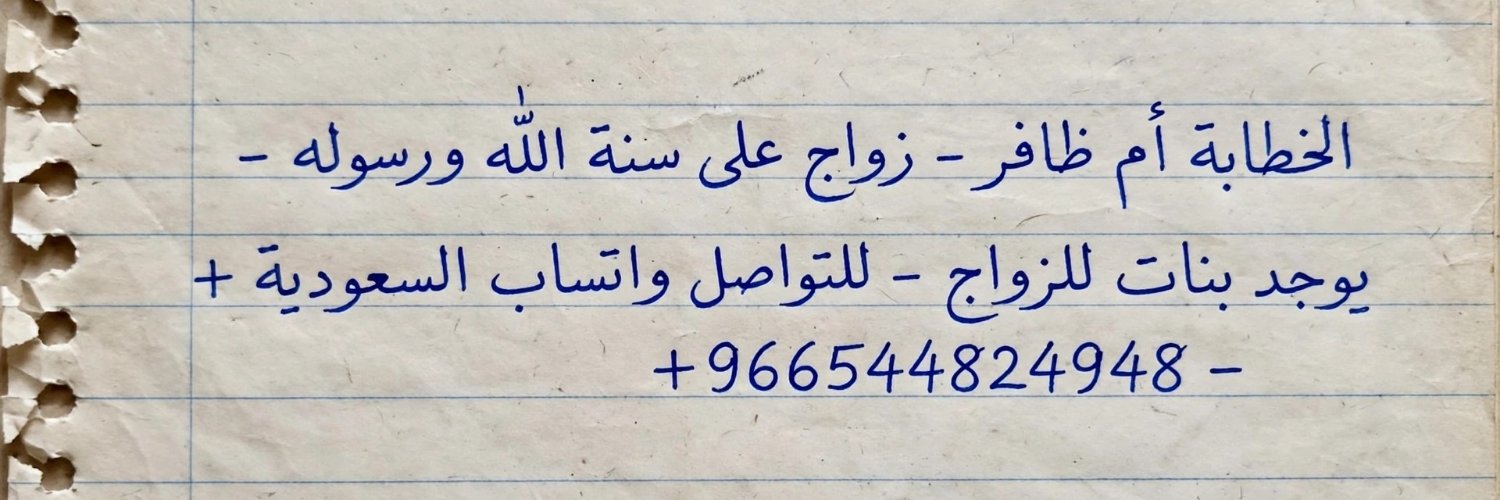 الخطابة أم ظافر - زواج على سنة الله ورسوله -
يوجد بنات للزواج - للتواصل واتساب السعودية +
+966544824948 -